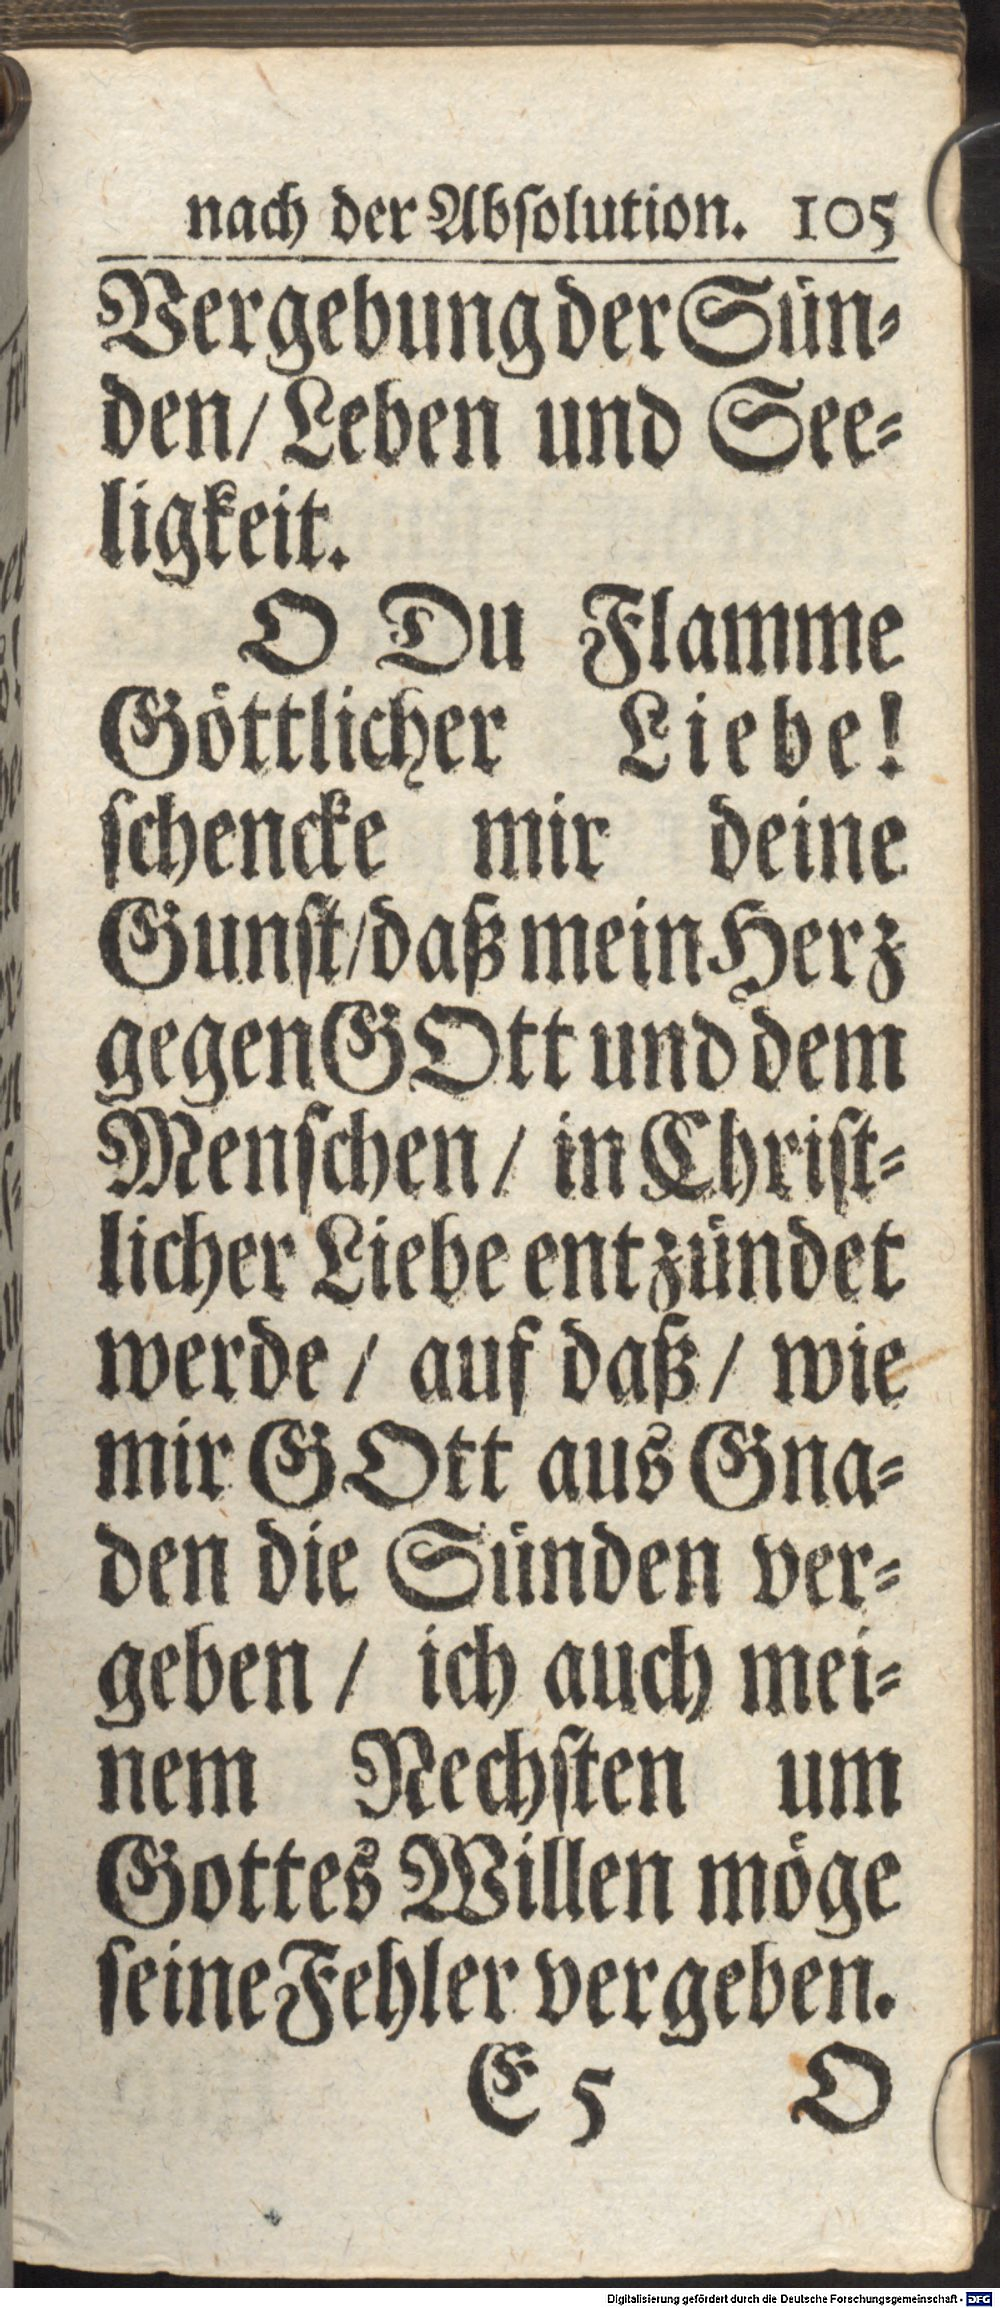 nach der Abſolution. 105
Vergebung der Sün⸗
den/ Leben und See⸗
ligkeit.
O Du Flamme
Göttlicher Liebe!
ſchencke mir deine
Gunſt/ daß mein Herz
gegen GOtt und dem
Menſchen/ in Chriſt⸗
licher Liebe entzündet
werde/ auf daß/ wie
mir GOtt aus Gna⸗
den die Sünden ver⸗
geben/ ich auch mei⸗
nem Nechſten um
Gottes Willen möge
ſeine Fehler vergeben.
E 5 O
Digitalisierung gefördert durch die Deutsche Forschungsgemeinschaft - DFG